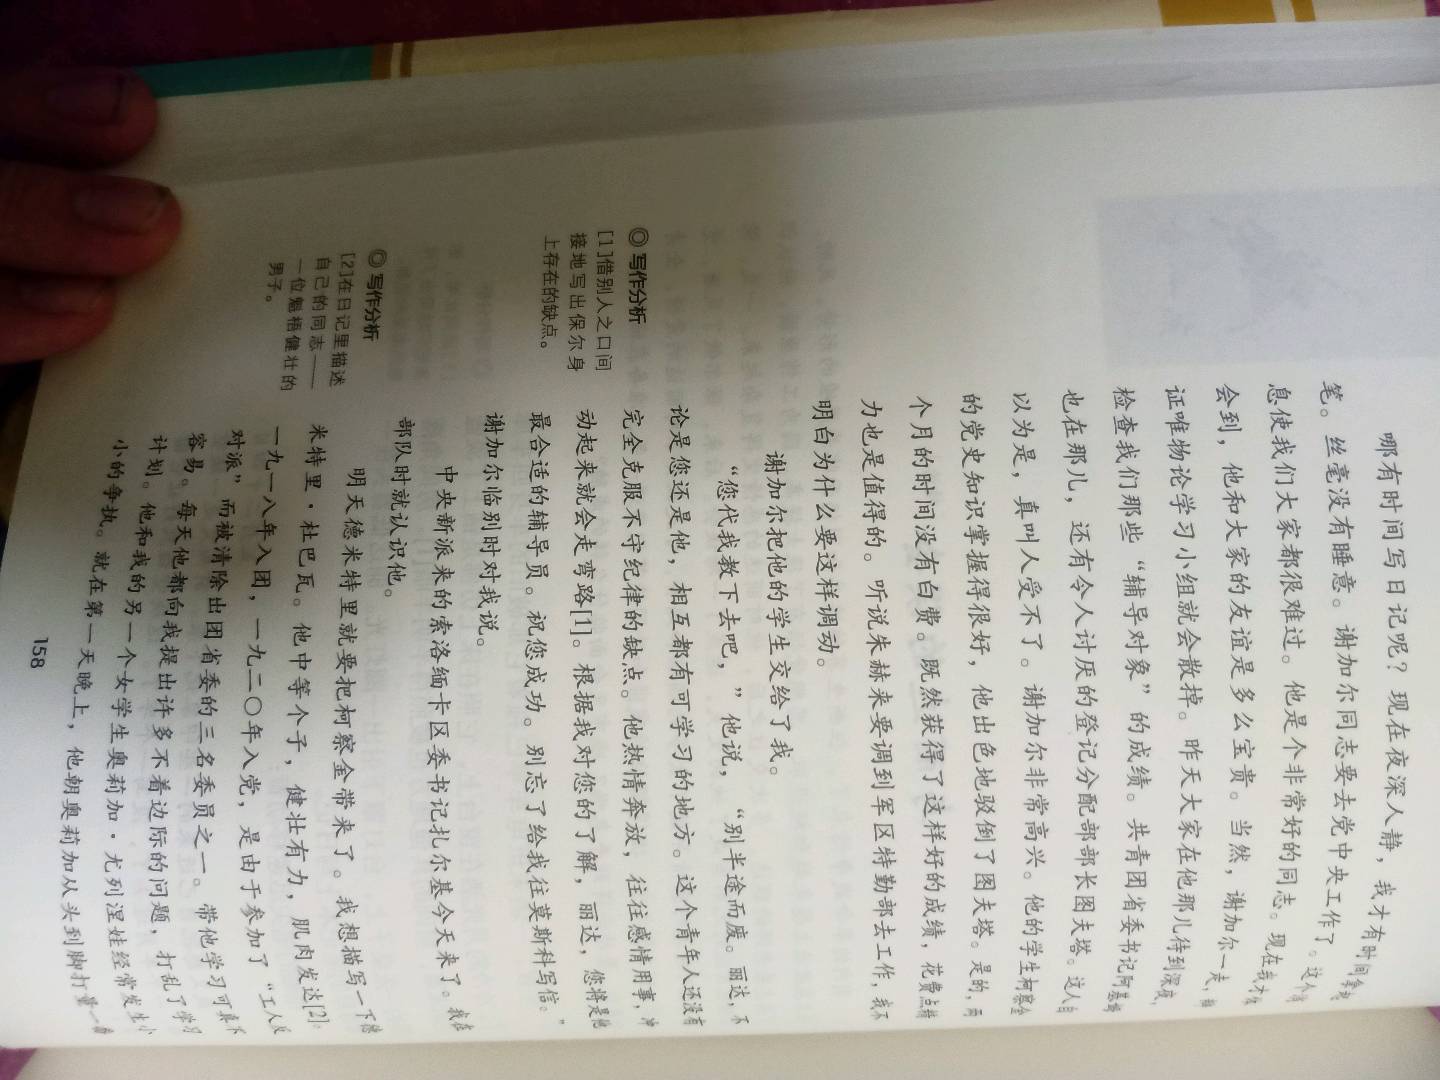 哪有时间写日记呢？现在夜深人静，我才有时间拿起
笔。丝毫没有睡意。谢加尔同志要去党中央工作了。这个消
息使我们大家都很难过。他是个非常好的同志。现在我才体
会到，他和大家的友谊是多么宝贵。当然，谢加尔一走，辩
证唯物论学习小组就会散掉。昨天大家在他那儿待到深夜，
检查我们那些“辅导对象”的成绩。共青团省委书记阿基姆
也在那儿，还有令人讨厌的登记分配部部长图夫塔。这人自
以为是，真叫人受不了。谢加尔非常高兴。他的学生柯察金
的党史知识掌握得很好，他出色地驳倒了图夫塔。是的，两
个月的时间没有白费。既然获得了这样好的成绩，花费点精
力也是值得的。听说朱赫来要调到军区特勤部去工作，我不
明白为什么要这样调动。
谢加尔把他的学生交给了我。
“您代我教下去吧，”他说，“别半途而废。丽达，不
论是您还是他，相互都有可学习的地方。这个青年人还没有
完全克服不守纪律的缺点。他热情奔放，往往感情用事，冲
动起来就会走弯路[1]。根据我对您的了解，丽达，您将是他
最合适的辅导员。祝您成功。别忘了给我往莫斯科写信。”
谢加尔临别时对我说。
中央新派来的索洛缅卡区委书记扎尔基今天来了。我在
部队时就认识他。
明天德米特里就要把柯察金带来了。我想描写一下德
米特里·杜巴瓦。他中等个子，健壮有力，肌肉发达[2]。
一九一八年入团，一九二〇年入党，是由于参加了“工人反
对派”而被清除出团省委的三名委员之一。带他学习可真不
容易。每天他都向我提出许多不着边际的问题，打乱了学习
计划。他和我的另一个女学生奥莉加·尤列涅娃经常发生小
小的争执。就在第一天晚上，他朝奥莉加从头到脚打量一番
◎ 写作分析
[1]借别人之口间
接地写出保尔身
上存在的缺点。
◎ 写作分析
[2]在日记里描述
自己的同志——
一位魁梧健壮的
男子。
158